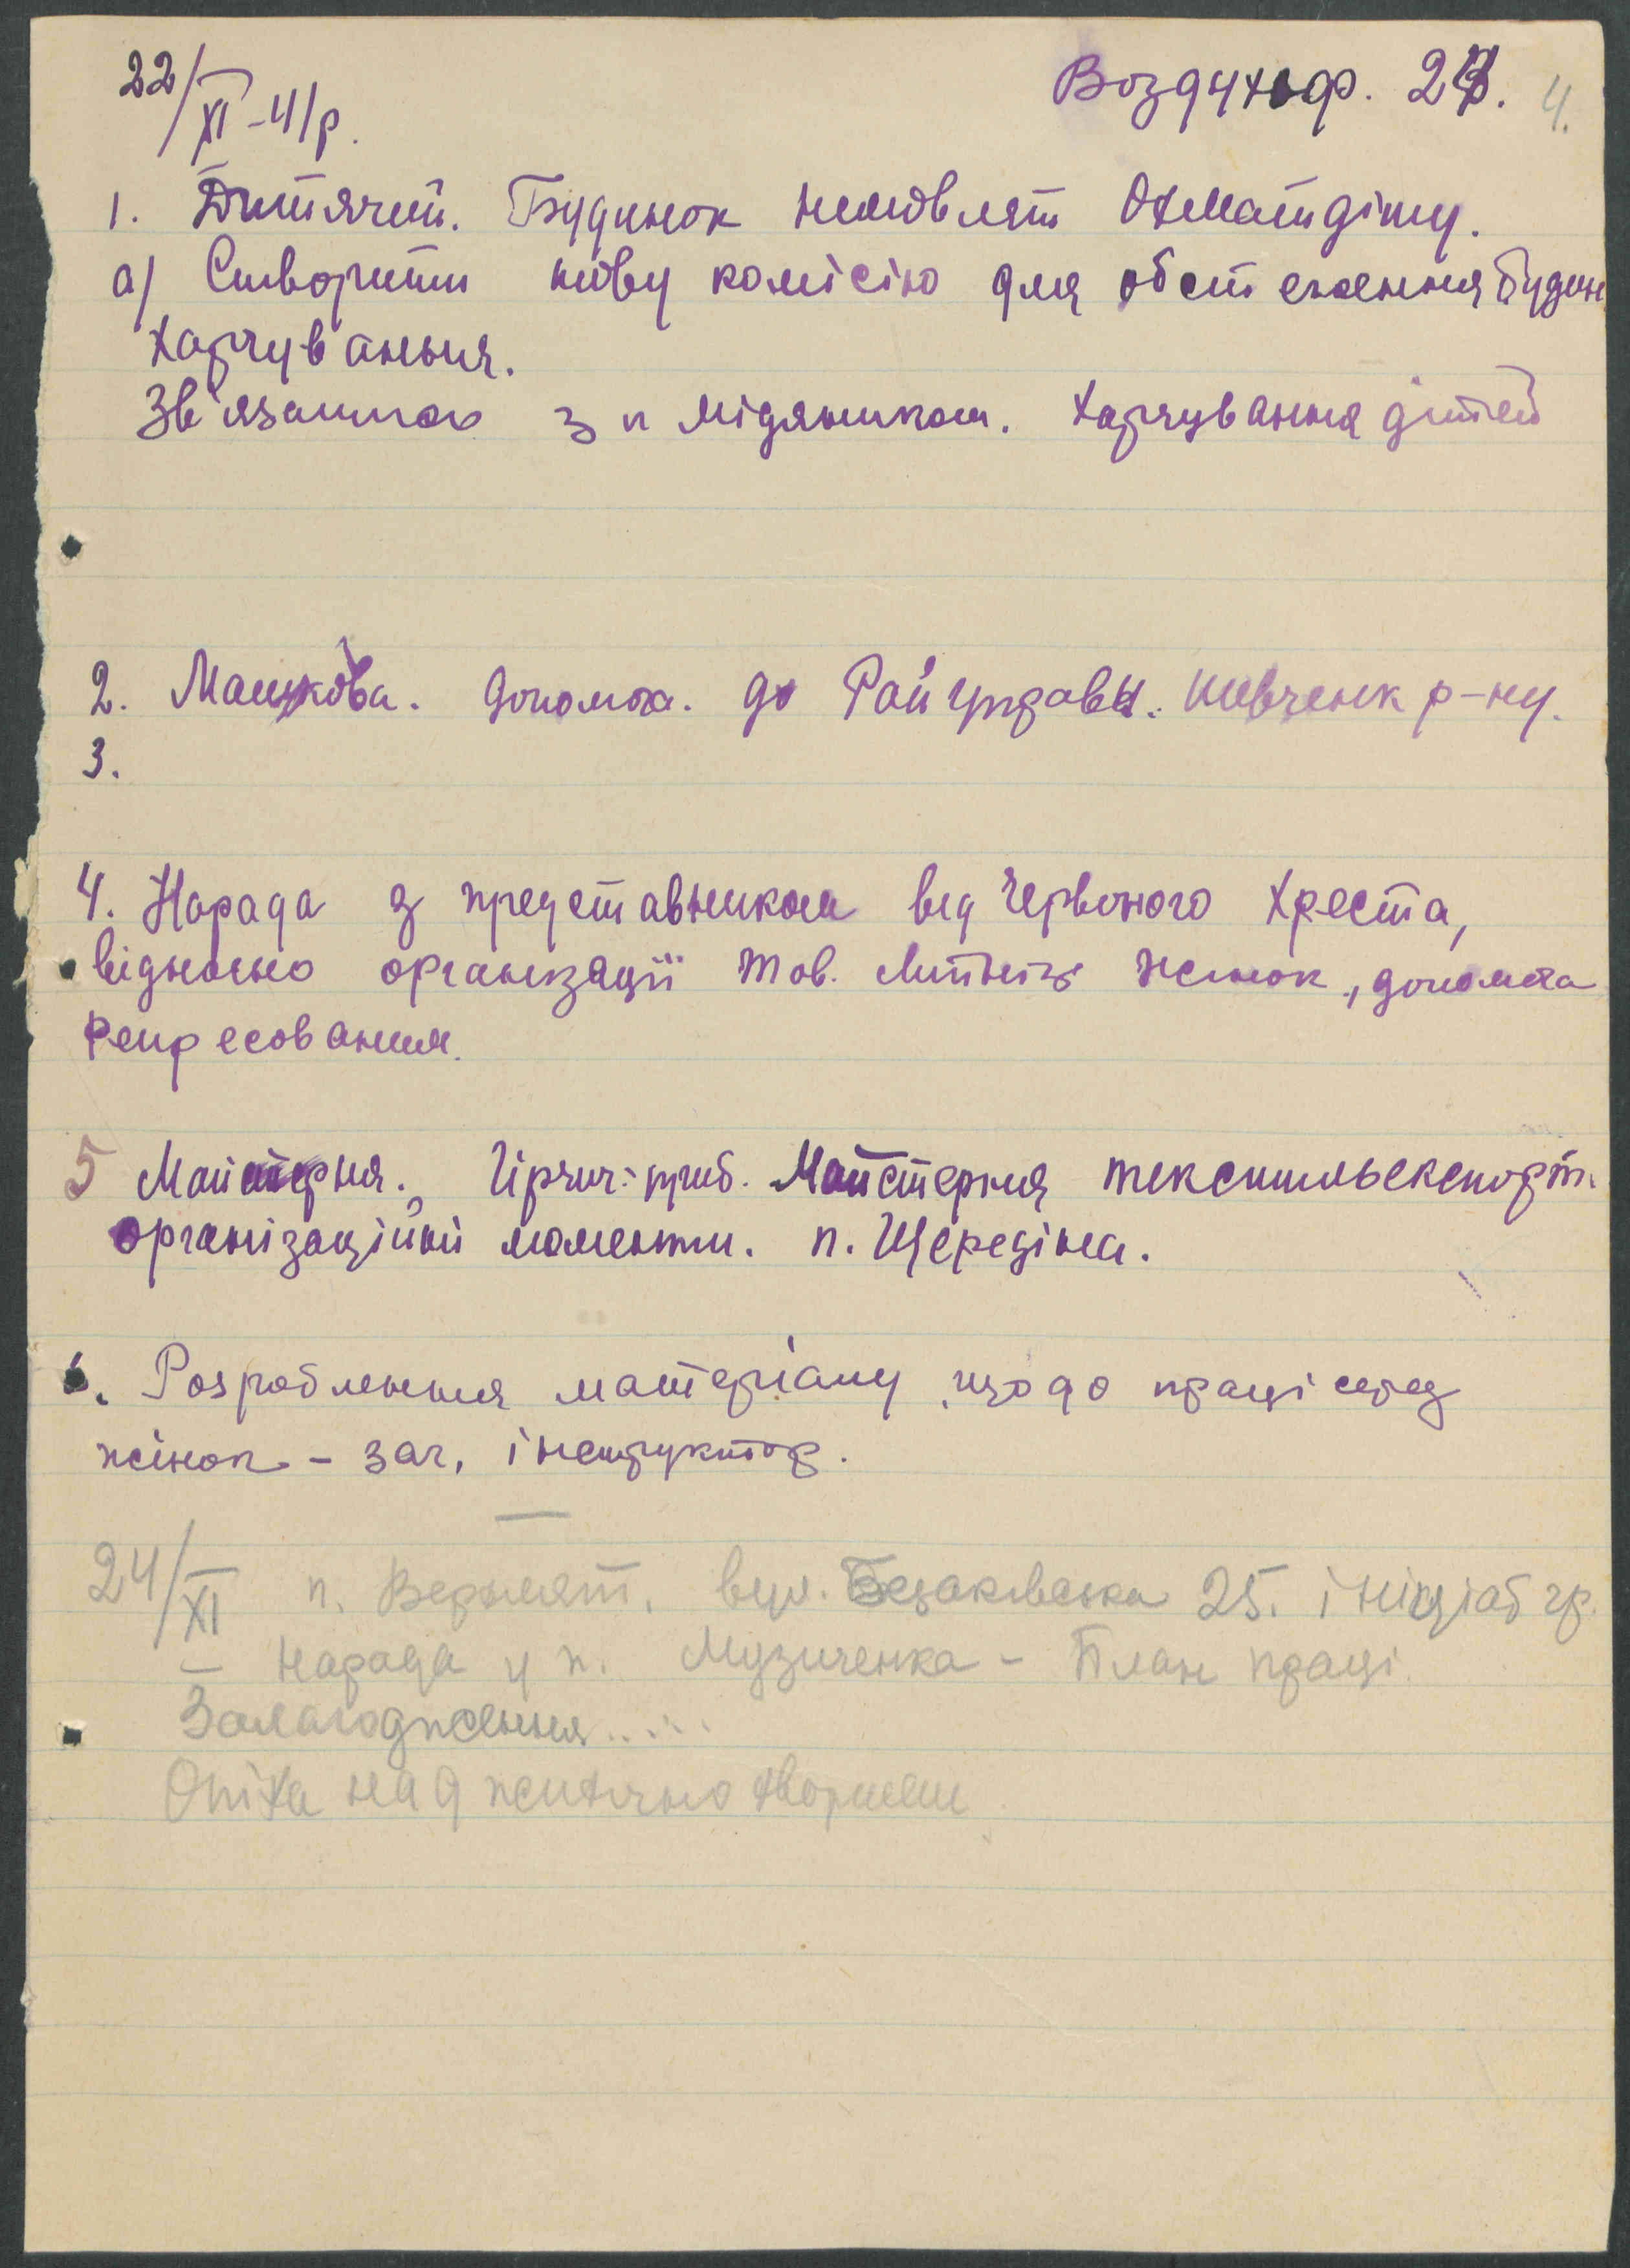 22/XI-41р. Воздухоф. 27. 4.
1. Дитячий. Будинок немовлят Охматдіту.
а) Створити нову комісію для обстеження Будин
харчування.
Зв'язатися з п Мідяником. Харчування дітей
2. Машукова. Допомога. до Райуправи. Шевченк р-ну.
3.
4. Нарада з представником від Червоного Хреста,
відносно організації тов. жінок, допомога
репресованим.
5 Майстерня. Майстерня текстильекспорт.
організаційні моменти. п. Щередіна.
6. Розроблення матеріалу щодо праці серед
жінок – заг. інструктор.
24/XI п. вул. Безаковська 25. ініціат гр.
– Нарада у п. Музиченка – План праці.
Залагодження.....
Опіка над хворими